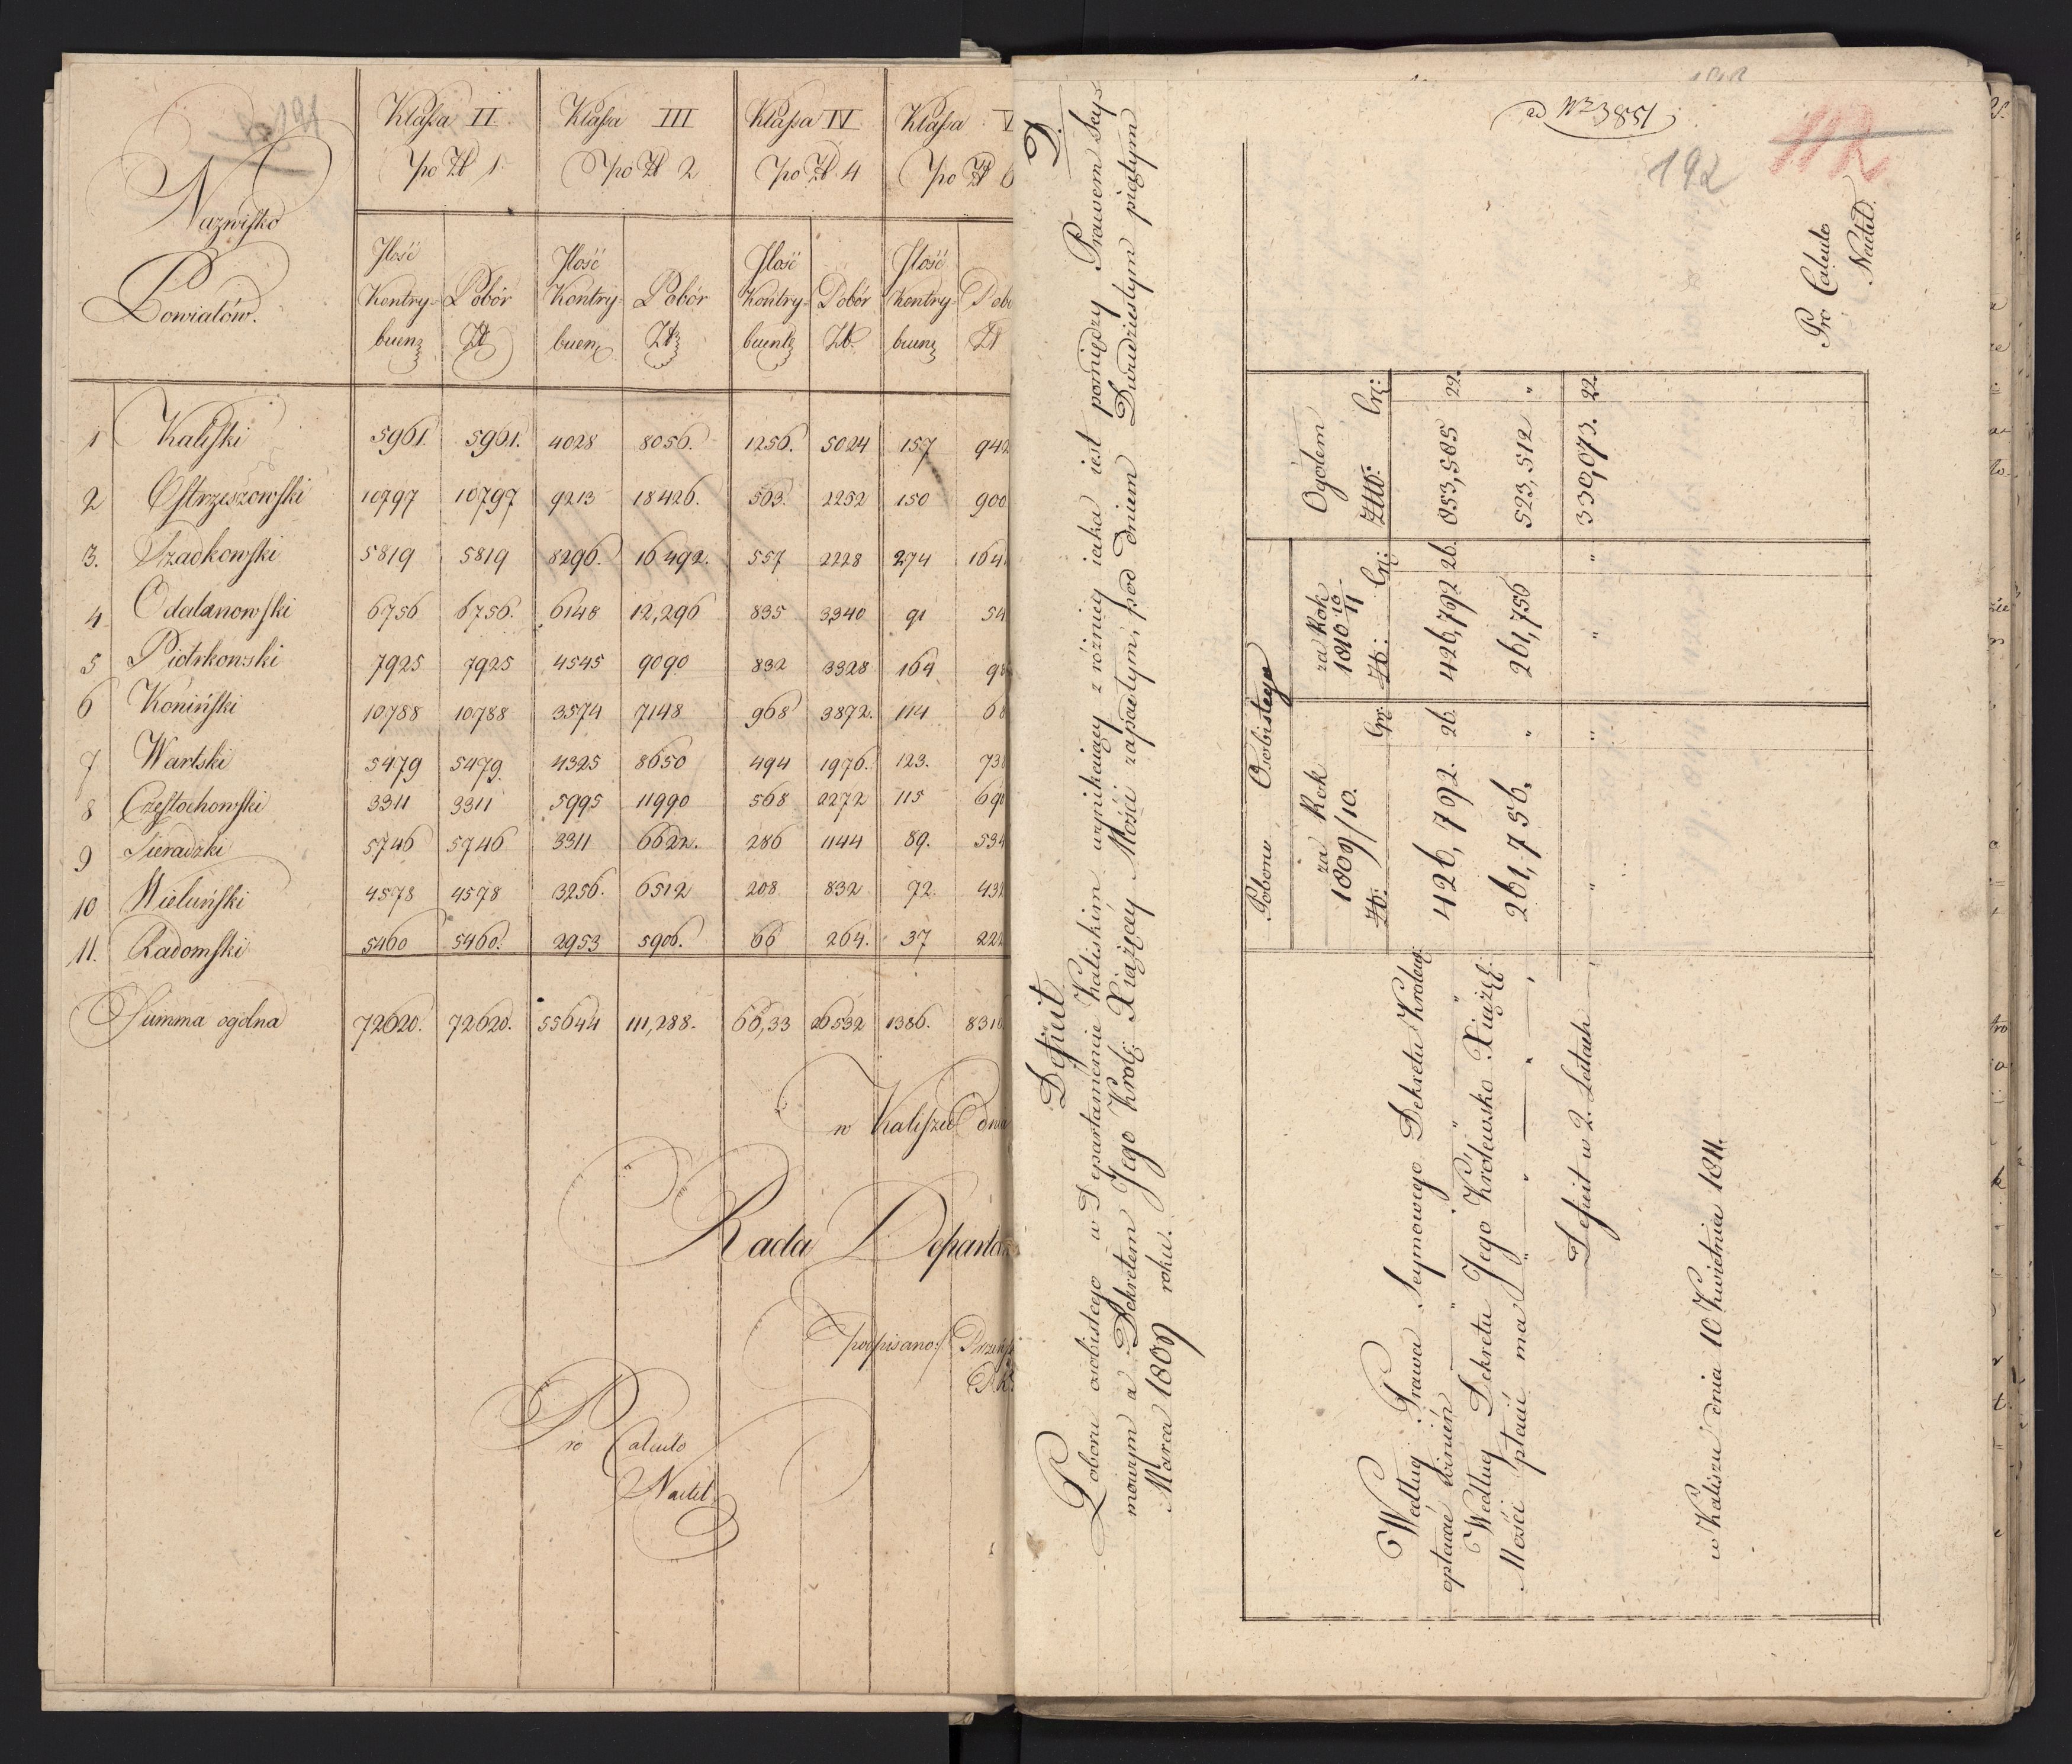 191
Nazwisko
Powiatów.
Klassa II
po Zł 1
Klassa III
po Zł 2
Klassa IV
po Zł. 4
Klassa V
po Zł 6
Jlość Kontry- buen
Pobór Zł
Jlość Kontry- buen
Pobór Zł
Jlość Kontry- buent
Pobór Zł.
Jlość Kontry- buen
Pobó Zł
1 Kaliski 5961. 5961. 4028 8056. 1256. 5024 157 942
2 Ostrzeszowski 10797 10797 9213 18426. 563. 2252 150 900
3. Szadkowski 5819 5819 8296. 16492. 557 2228 274 164
4 Odalanowski 6756 6756. 6148 12,296 835 3340 91 54
5 Piotrkowski 7925 7925 4545 9090 832 3328 164 98
6 Koniński 10788 10788 3574 7148 968 3872. 114 68
7 Wartski 5479 5479. 4325 8650 494 1976. 123. 73
8 Częstochowski 3311 3311 5995 11990 568 2272 115 69
9 Sieradzki 5746 5746 3311 6622. 286 1144 89. 534
10 Wieluński 4578 4578 3256. 6512 208 832 72. 432
11. Radomski 5460 5460. 2953 5906. 66 264. 37 222
Summa ogolna 72620. 72620. 55644 111,288. 66,33 26532 1386. 831
w Kaliszu dnia
Rada Departa
podpisano:/
Pro Calculo
Nadel
D.
Defiut
Poboru osobistego w Departamencie Kaliskim wynikaiący z różnicy iaka iest pomiędzy Prawem Sey-
mowym a Dekretem Jego Krole: Xiążęcey Mości zapadłym, pod dniem Dwudziestym piątym
Marca 1809 roku.
ad Nr 3851
192
112
Poboru Osobistego
za Rok 1809/10. Zł: Gr:
za Rok 1810/11 Zł: Gr:
Ogółem Złtt: Gr:
Według Prawa Seymowego Dekretu Krolew:
opłacać winien " " " 426,792. 26. 426,792 26. 853,585 22.
Według Dekretu Jego Królewsko Xiążęc:
Mości płacić ma " " " 261,756. " 261,756 523,512 "
Defiut w 2. Latach " " " " 330,073. 22.
w Kaliszu dnia 10 Kwietnia 1811.
Pro Calculo
Nadel.